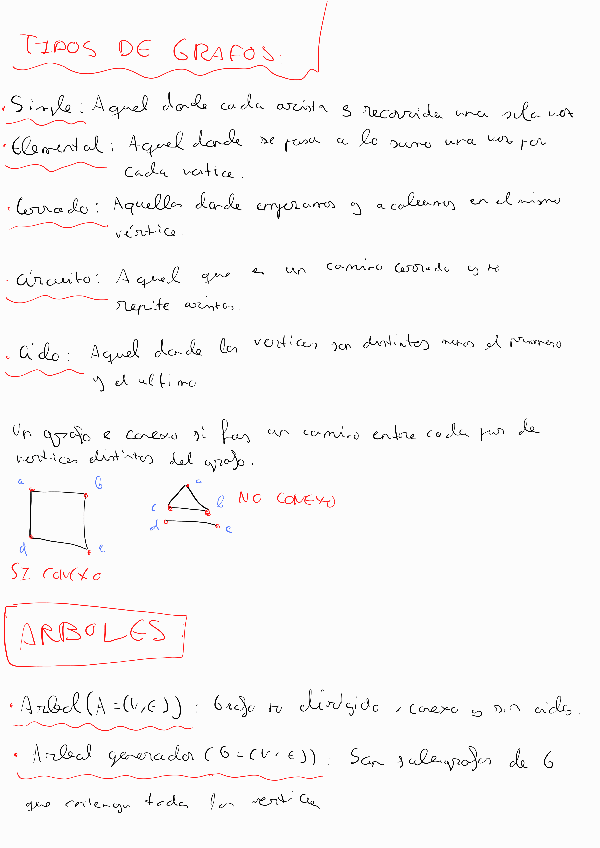 TIPOS DE GRAFOS.
· Simple: Aquel donde cada arista es recorrida una sola vez
· Elemental: Aquel donde se pasa a lo sumo una vez por
cada vertice.
· Cerrado: Aquellos donde empezamos y acabamos en el mismo
vértice
· Circuito: Aquel que es un camino cerrado y no
repite aristas
· Ciclo: Aquel donde los vertices son distintos menos el primero
y el ultimo
Un grafo e conexo si hay un camino entre cada par de
vertices distintos del grafo.
a b
d e
SI CONEXO
a
c b NO CONEXO
d e
ARBOLES
· Arbol (A=(V,E)): Grafo no dirigido, conexo y sin ciclos.
· Arbol generador (G=(V,E)). Son subgrafos de G
que contengan todos los vertices